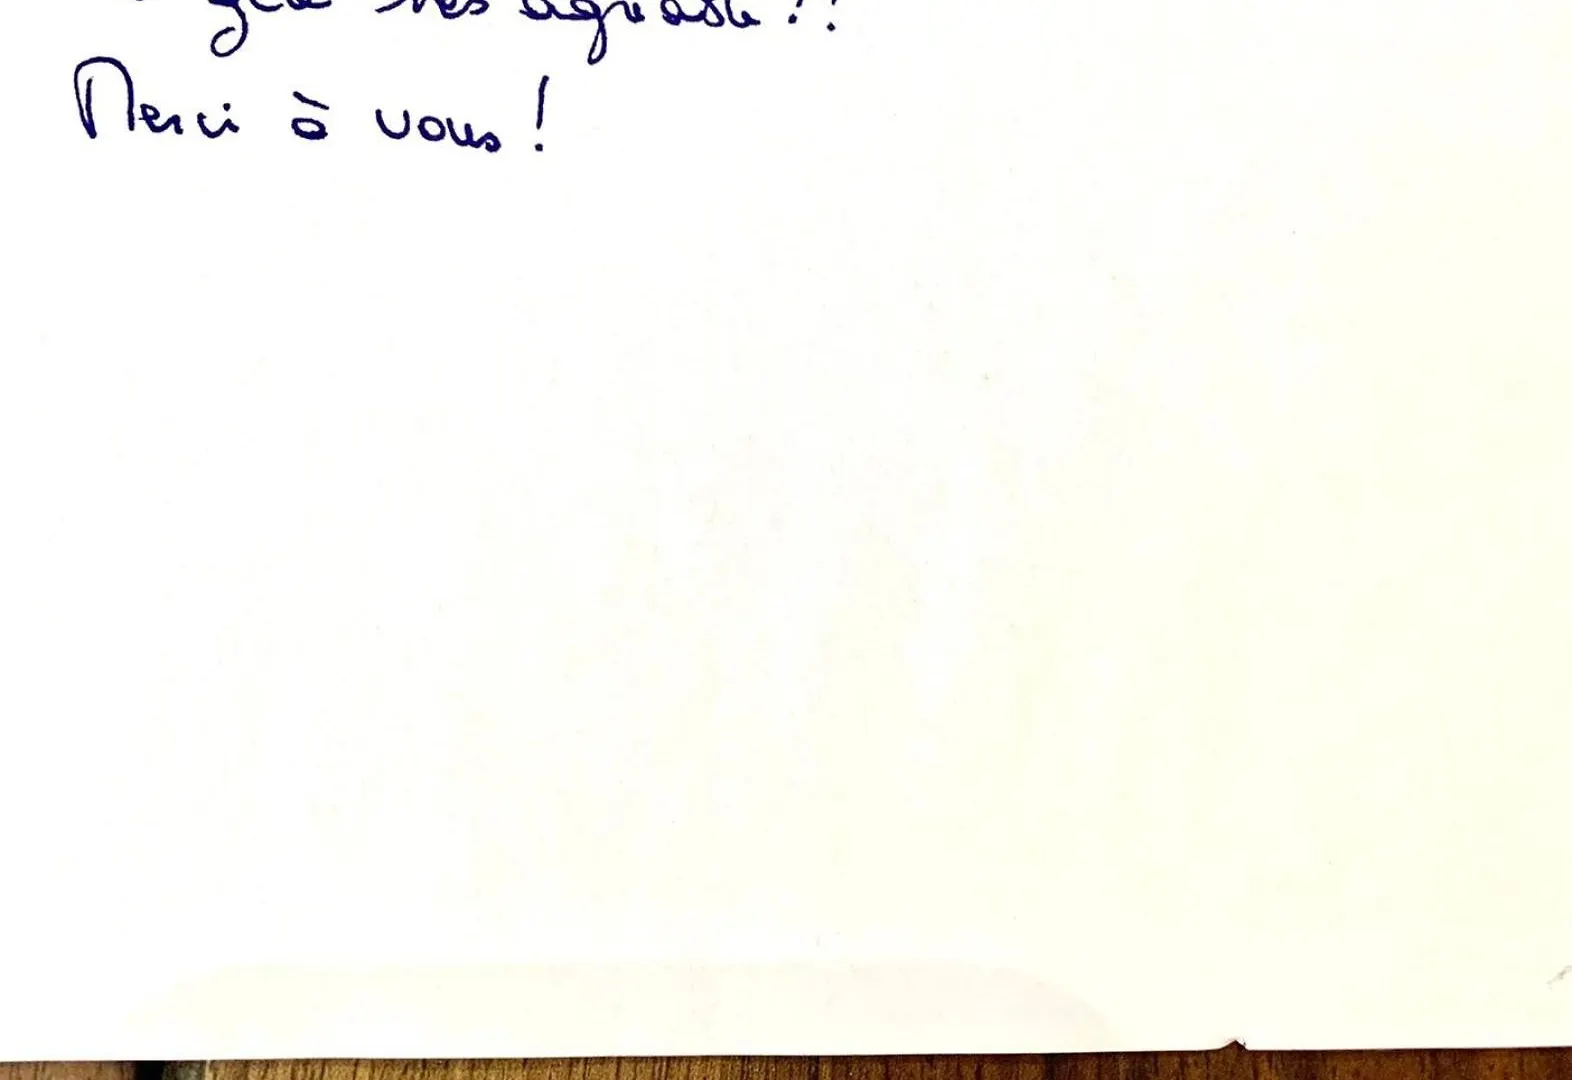 très agréable !!
Merci à vous !